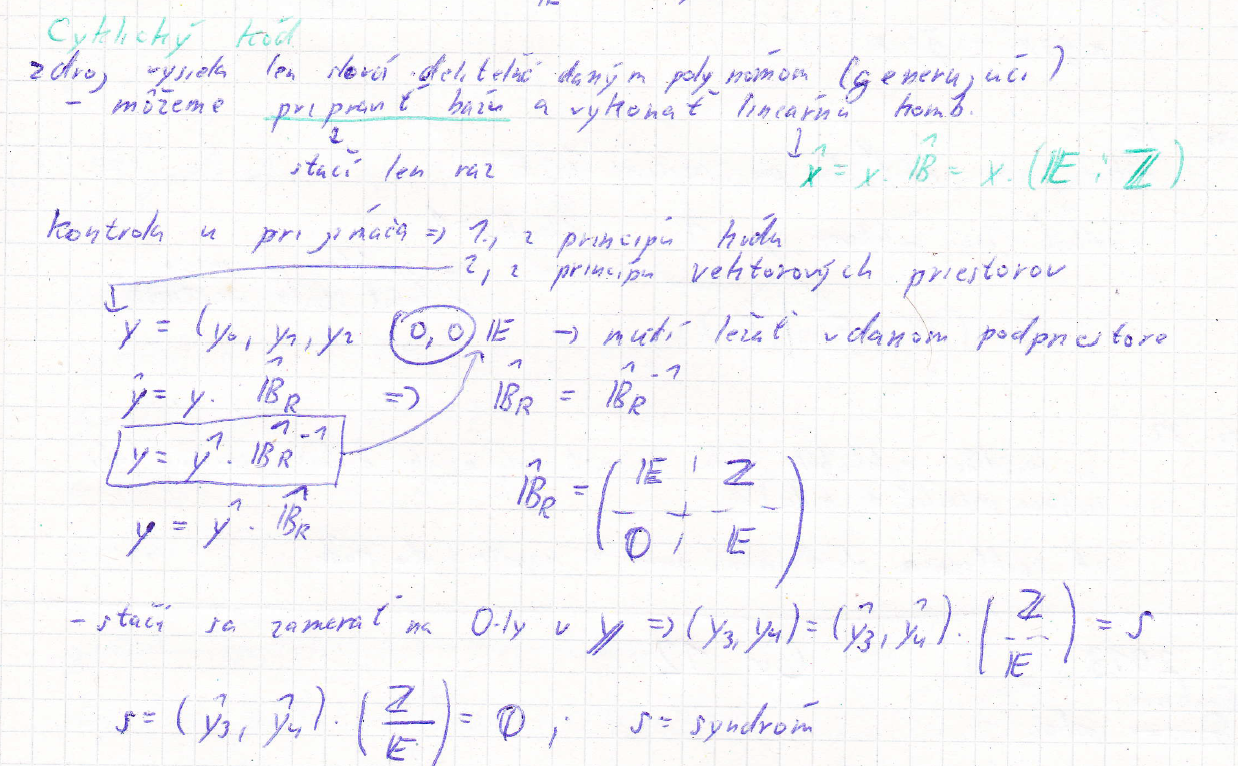 Cyklický kód
zdroj vysiela len slová deliteľné daným polynómom (generujúci)
- môžeme pripraviť bázu a vykonať lineárnu komb.
stačí len raz
x̂ = x · 𝔹̂ = x · (𝔼 ⋮ ℤ)
Kontrola u prijímača => 1., z princípu kódu
2., z princípu vektorových priestorov
y = (y₀, y₁, y₂ 0, 0) 𝔼 → musí ležať v danom podpriestore
ŷ = y · 𝔹̂_R => 𝔹̂_R = 𝔹̂_R⁻¹
y = ŷ · 𝔹̂_R⁻¹
y = ŷ · 𝔹̂_R
𝔹̂_R = (𝔼 ¦ ℤ
𝕆 ¦ 𝔼)
- stačí sa zamerať na 0-ly v y => (y₃, y₄) = (ŷ₃, ŷ₄) · (ℤ / 𝔼) = s
s = (ŷ₃, ŷ₄) · (ℤ / 𝔼) = 𝕆 ; s = syndróm